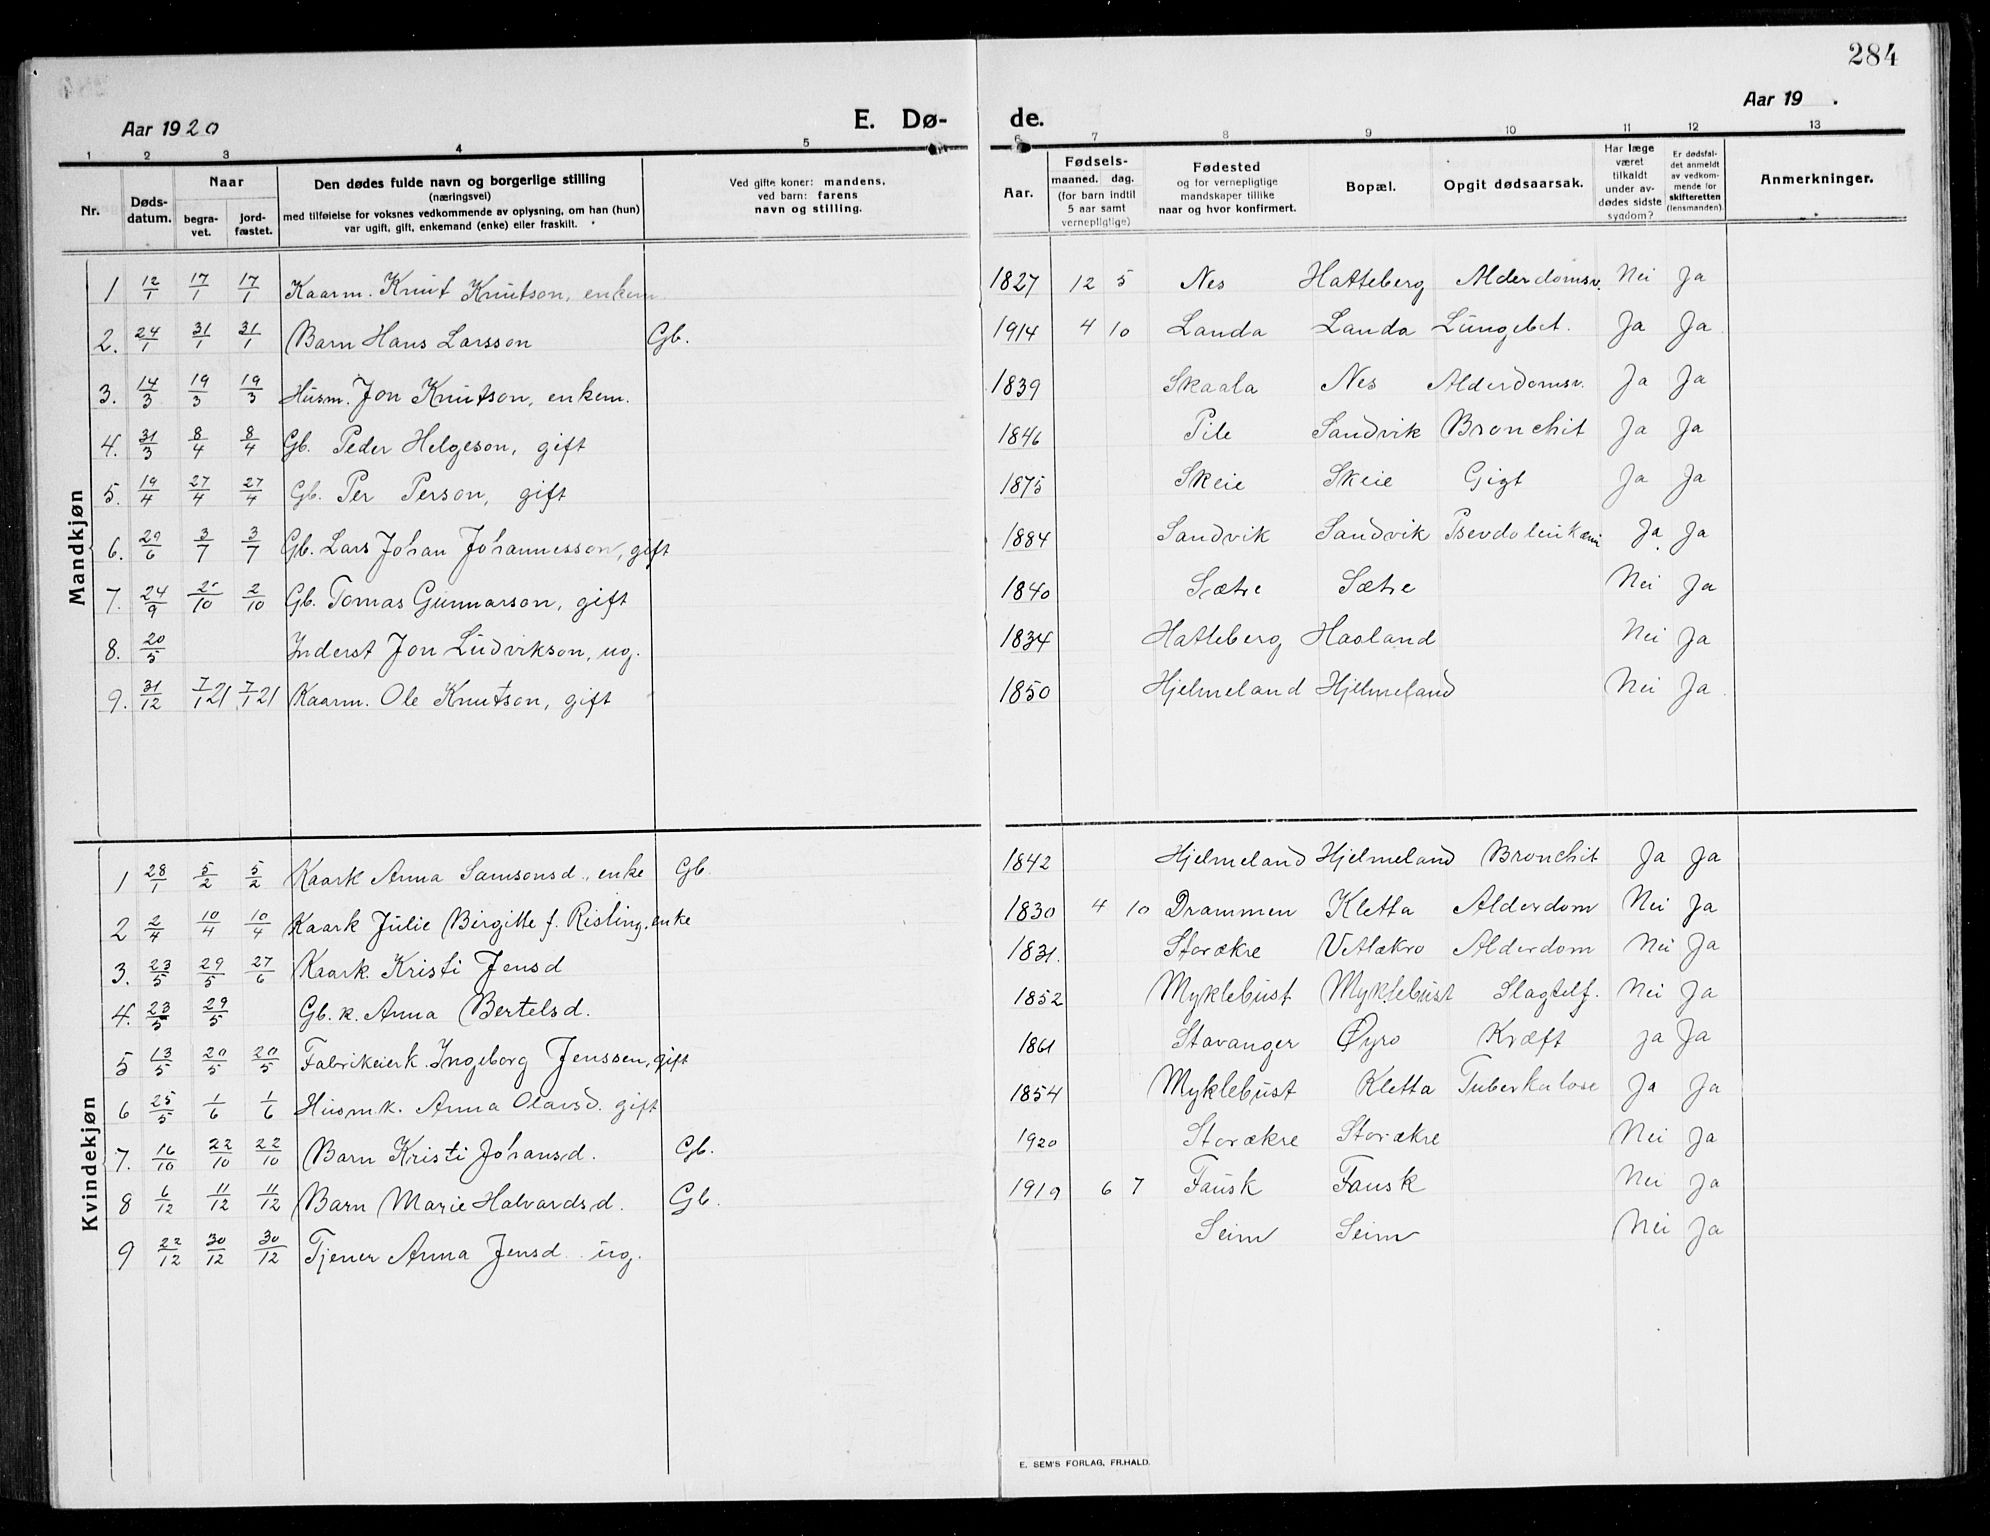 284
Aar 1920 E. Dø- de. Aar 19 .
1 2 3 4 5 6 7 8 9 10 11 12 13
Nr.
Døds-
datum.
Naar
begra-
vet.
jord-
fæstet.
Den dødes fulde navn og borgerlige stilling
(næringsvei)
med tilføielse for voksnes vedkommende av oplysning, om han (hun)
var ugift, gift, enkemand (enke) eller fraskilt.
Ved gifte koner: mandens,
ved barn: farens
navn og stilling.
Aar.
Fødsels-
maaned. dag.
(for barn indtil
5 aar samt
vernepligtige)
Fødested
og for vernepligtige
mandskaper tillike
naar og hvor konfirmert.
Bopæl.
Opgit dødsaarsak.
Har læge
været
tilkaldt
under av-
dødes sidste
sygdom?
Er dødsfal-
det anmeldt
av vedkom-
mende for
skifteretten
(lensmanden).
Anmerkninger.
Mandkjøn
1 12/1 17/1 17/1 Kaarm. Knut Knutson, enkem 1827 12 5 Nes Hatteberg Alderdomsv. Nei Ja
2. 24/1 31/1 31/1 Barn Hans Larsson Gb. 1914 4 10 Landa Landa Lungebet. Ja Ja
3. 14/3 19/3 19/3 Husm. Jon Knutson, enkem. 1839 Skaala Nes Alderdomsv. Ja Ja
4. 31/3 8/4 8/4 Gb. Peder Helgeson, gift 1846 Pile Sandvik Bronchit Ja Ja
5. 19/4 27/4 27/4 Gb. Per Person, gift 1875 Skeie Skeie Gigt Ja Ja
6. 29/6 3/7 3/7 Gb. Lars Johan Johannesson, gift 1884 Sandvik Sandvik Psevdoleukæmi Ja Ja
7. 24/9 2/10 2/10 Gb. Tomas Gunnarson, gift 1840 Sætre Sætre Nei Ja
8. 20/5 Inderst Jon Ludvikson, ug. 1834 Hatteberg Haaland Nei Ja
9. 31/12 7/1 21 7/1 21 Kaarm. Ole Knutson, gift 1850 Hjelmeland Hjelmeland Nei Ja
Kvindekjøn
1 28/1 5/2 5/2 Kaark Anna Samsonsd., enke Gb. 1842 Hjelmeland Hjelmeland Bronchit Ja Ja
2 2/4 10/4 10/4 Kaark Julie Birgitte f. Risting, enke 1830 4 10 Drammen Kletta Alderdom Nei Ja
3. 23/5 29/5 27/6 Kaark. Kristi Jensd 1831. Storækre Vetlækro Alderdom Nei Ja
4. 23/5 29/5 Gb. k. Anna Bertelsd. 1852 Myklebust Myklebust Slagtelf. Nei Ja
5 13/5 20/5 20/5 Fabrikeierk. Ingeborg Jenssen, gift 1861 Stavanger Øyro Kræft ja Ja
6 25/5 1/6 1/6 Husmk. Anna Olavsd. gift 1854 Myklebust Kletta Tuberkulose Ja Ja
7. 16/10 22/10 22/10 Barn Kristi Johansd. Gb. 1920 Storækre Storækre Nei Ja
8 6/12 11/12 11/12 Barn Marie Halvardsd. Gb. 1919 6 7 Fausk Fausk Nei Ja
9 22/12 30/12 30/12 Tjener Anna Jensd. ug. Seim Seim Nei Ja
E. SEM'S FORLAG, FR.HALD.